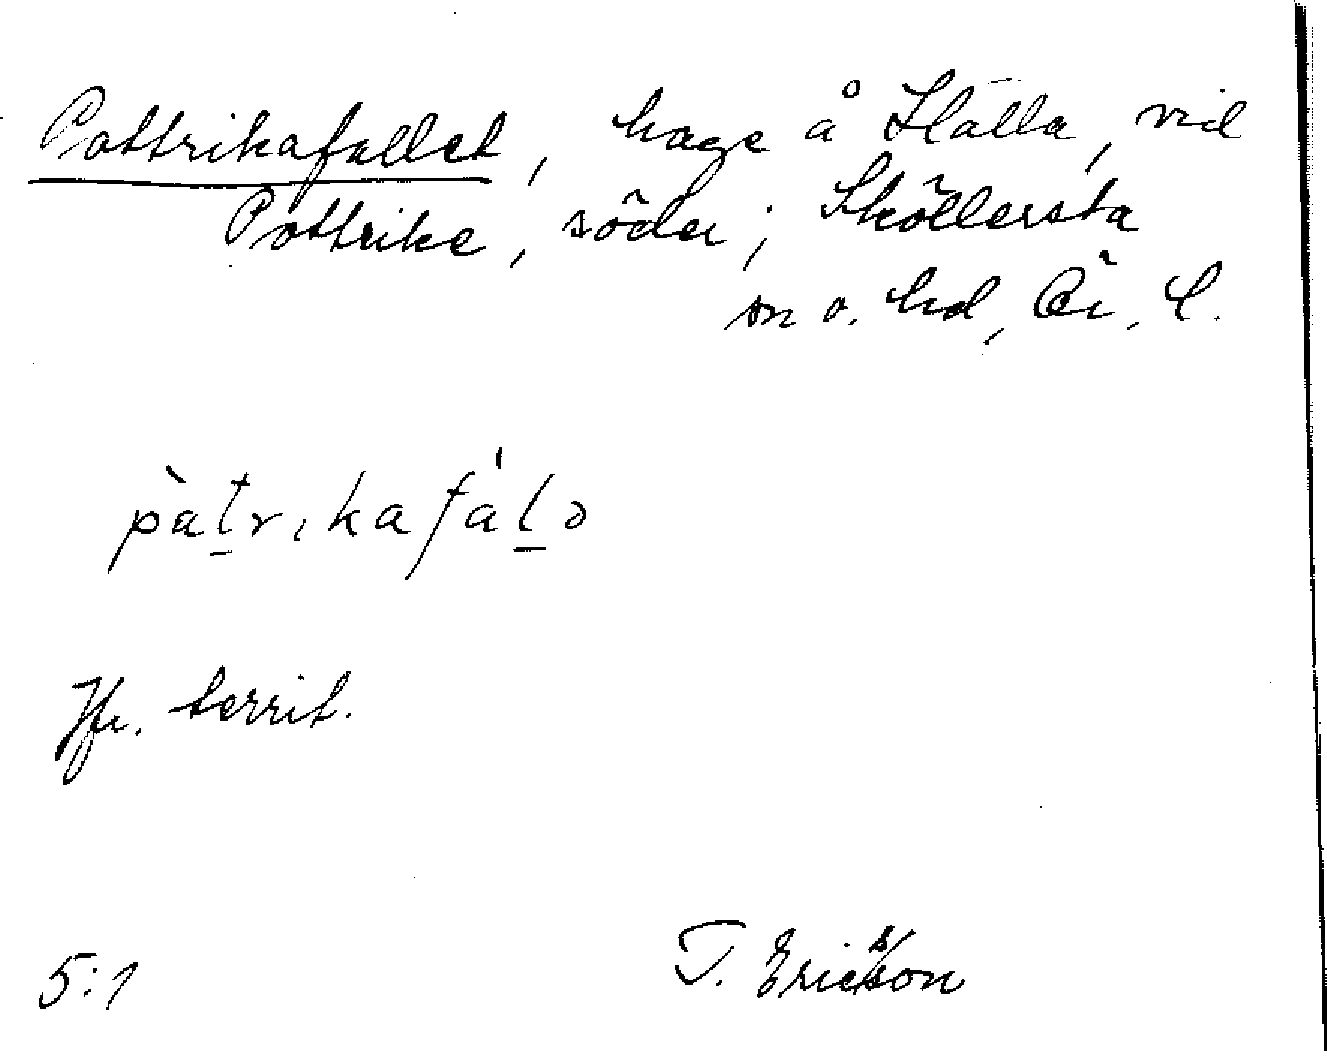 Pottrikafallet, hage å Hälla, vid
Pottrike, söder; Sköllersta
sn o. hd, Ör. l.
pàtrikafálə
Jfr. territ.
5:1 T. Ericsson